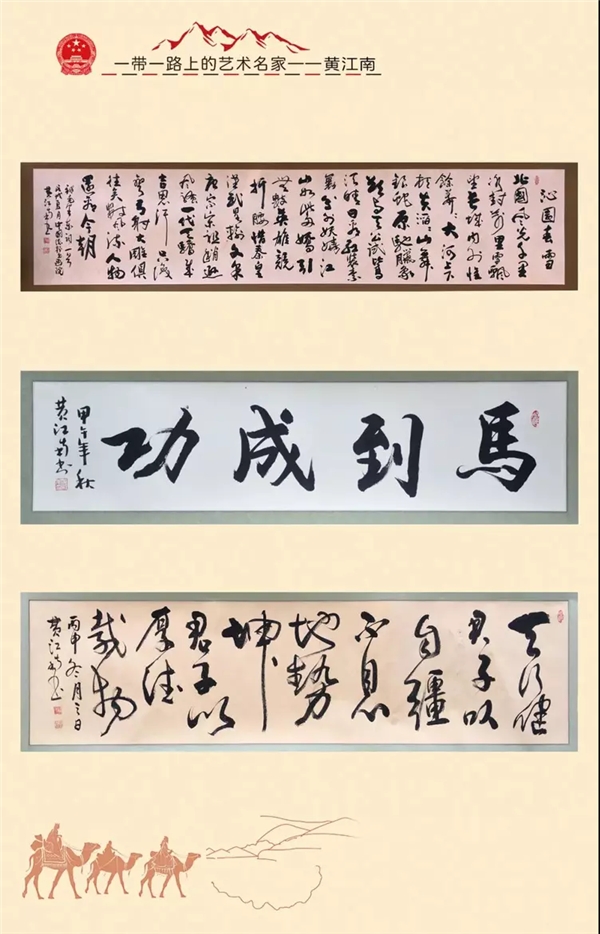 一带一路上的艺术名家——黄江南
沁園春雪
北國風光千里
冰封万里雪飘
望長城内外惟
餘莽莽大河上下
頓失滔滔山舞
銀蛇原馳臘象
欲与天公試比高
須晴日看紅裝素
裹分外妖嬈江
山如此多嬌引
無數英雄競
折腰惜秦皇
漢武略輸文采
唐宗宋祖稍遜
風騷一代天驕成
吉思汗只識
彎弓射大雕俱
往矣數風流人物
還看今朝
黄江南书
馬到成功
甲午年秋
黄江南书
天行健
君子以
自彊
不息
地勢
坤
君子以
厚德
載物
丙申冬月三日
黄江南书